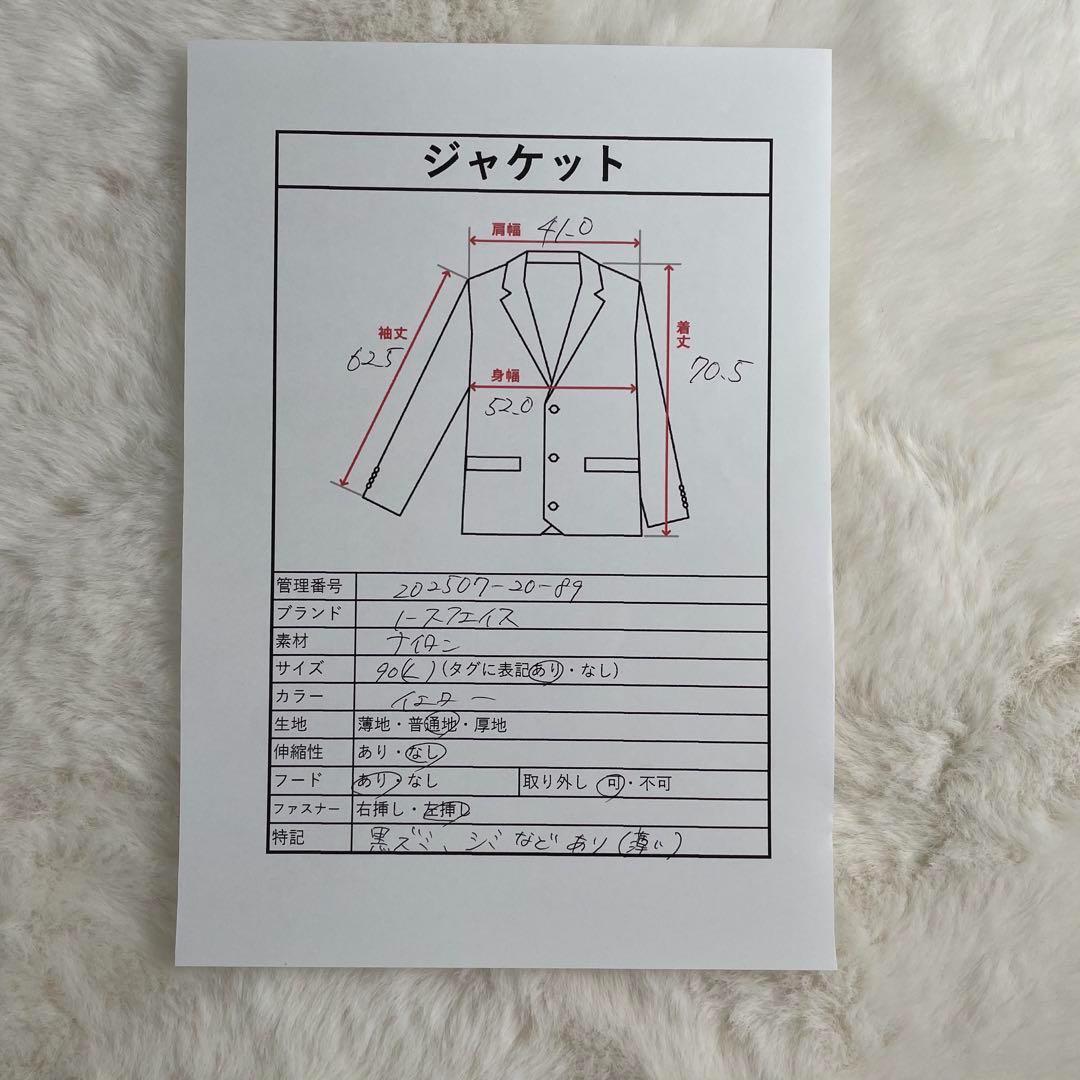 ジャケット
肩幅 41.0
袖丈 62.5
着丈 70.5
身幅 52.0
管理番号 202507-20-89
ブランド ノースフェイス
素材 ナイロン
サイズ 90(L)(タグに表記あり・なし)
カラー イエロー
生地 薄地・普通地・厚地
伸縮性 あり・なし
フード あり・なし 取り外し 可・不可
ファスナー 右挿し・左挿し
特記 黒ズミ、シミなどあり(薄い)